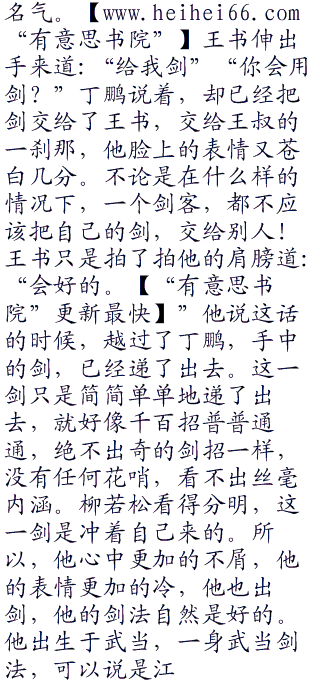 名气。【www.heihei66.com
“有意思书院”】王书伸出
手来道：“给我剑”“你会用
剑？”丁鹏说着，却已经把
剑交给了王书，交给王叔的
一刹那，他脸上的表情又苍
白几分。不论是在什么样的
情况下，一个剑客，都不应
该把自己的剑，交给别人！
王书只是拍了拍他的肩膀道：
“会好的。【“有意思书
院”更新最快】”他说这话
的时候，越过了丁鹏，手中
的剑，已经递了出去。这一
剑只是简简单单地递了出
去，就好像千百招普普通
通，绝不出奇的剑招一样，
没有任何花哨，看不出丝毫
内涵。柳若松看得分明，这
一剑是冲着自己来的。所
以，他心中更加的不屑，他
的表情更加的冷，他也出
剑，他的剑法自然是好的。
他出生于武当，一身武当剑
法，可以说是江